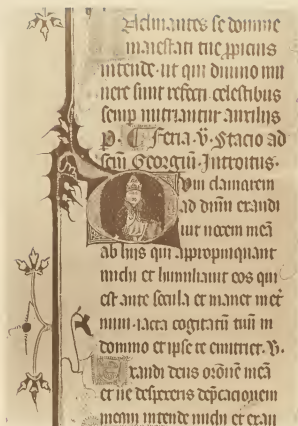 Aclinantes se domine
maiestati tue ꝓpicius
intende · ut qui diuino mu
nere sunt refecti celestibus
semꝑ nutriantur auxiliis
P. Feria · v̇ · Stacio ad
sc̄m Georgiū · Introitus ·
Dum clamarem
ad dn̄m exaudi
uit uocem meā
ab hiis qui appropinquant
michi et humiliauit eos qui
est ante secula et manet in et̄
num · iacta cogitatū tuū in
domino et ipse te enutriet · v̇.
Exaudi deus orōnē meā
et ne despexeris dep̄cacionem
meam intende michi et exau